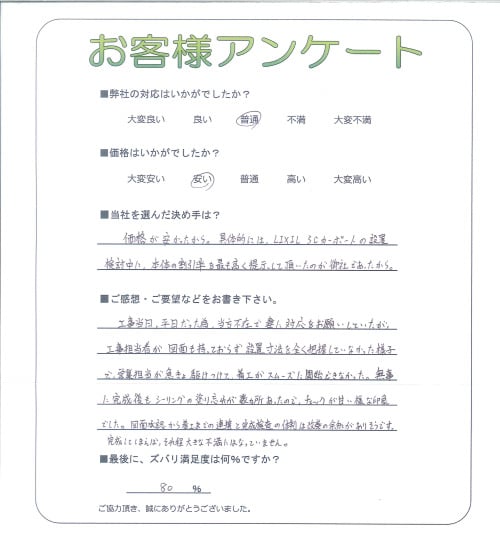 お客様アンケート
■弊社の対応はいかがでしたか？
大変良い 良い 普通 不満 大変不満
■価格はいかがでしたか？
大変安い 安い 普通 高い 大変高い
■当社を選んだ決め手は？
価格が安かったから。具体的には、LIXIL SCカーポートの設置
検討中に、本体の割引率を最も高く提示して頂いたのが御社であったから。
■ご感想・ご要望などをお書き下さい。
工事当日、平日だった為、当方不在で妻に対応をお願いしていたが、
工事担当者が図面も持っておらず設置寸法を全く把握していなかった様子
で、営業担当が急きょ駆けつけて、着工がスムーズに開始できなかった。無事
に完成後もシーリングの塗り忘れが数ヶ所あったので、チェックが甘い様な印象
でした。図面承認から着工までの連携と完成検査の体制は改善の余地がありそうです。
完成してしまえば、それ程大きな不満にはなっていません。
■最後に、ズバリ満足度は何%ですか？
80 %
ご協力頂き、誠にありがとうございました。